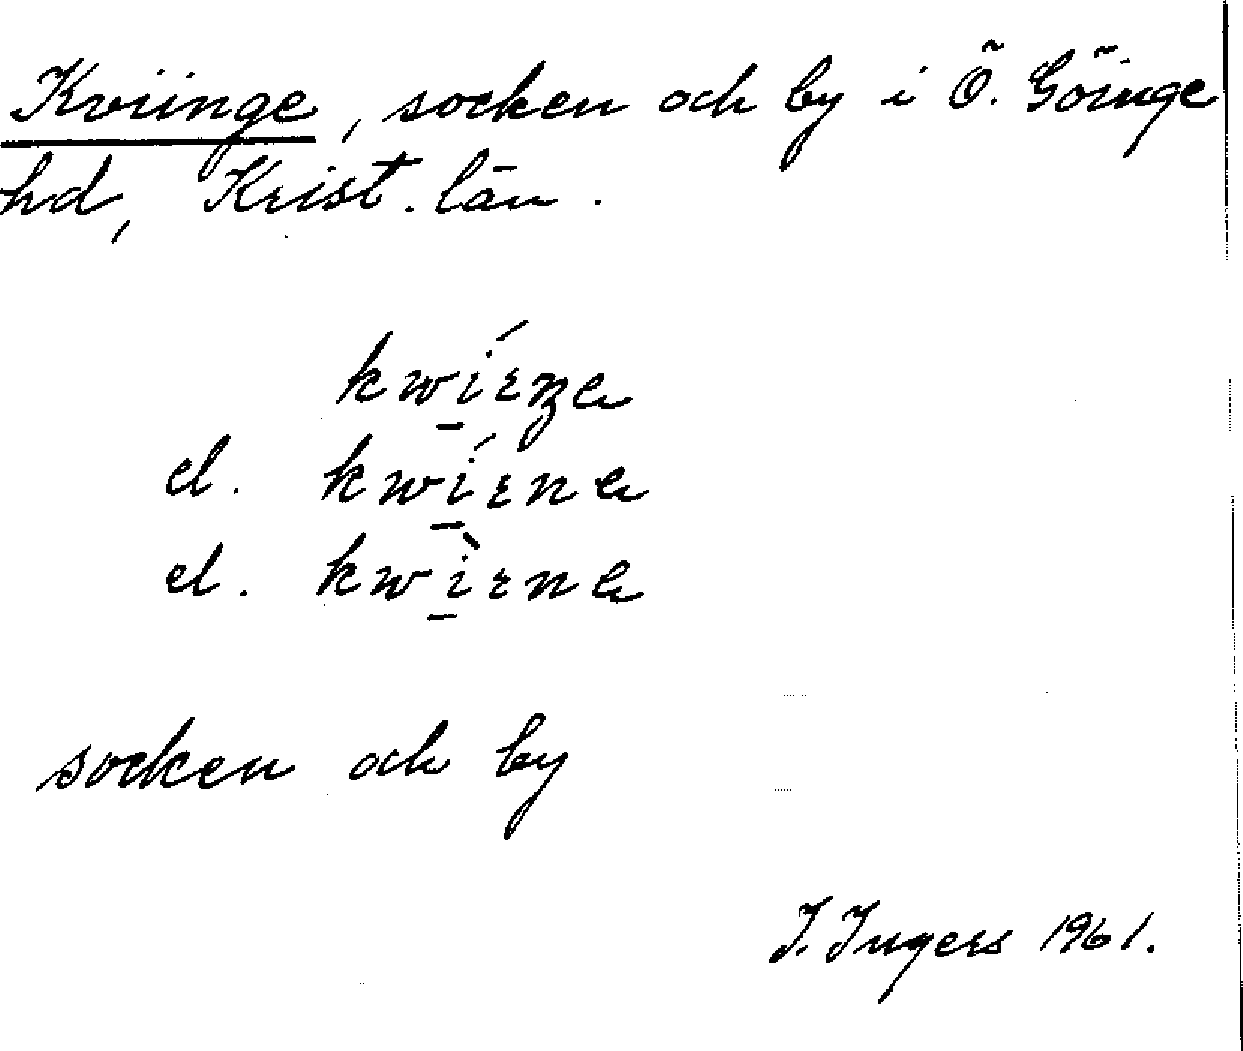 Kviinge, socken och by i Ö. Göinge
hd, Krist. län.
el.
el.
socken och by
I. Ingers 1961.